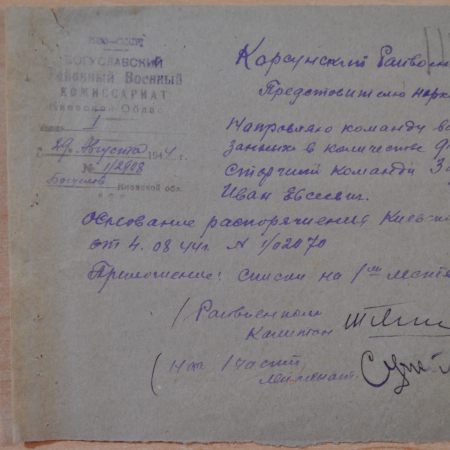 НКО-СССР
БОГУСЛАВСКИЙ
Районный Военный
КОМИССАРИАТ
Киевской Обл.
1
29. Августа 1944 г.
№ 1/2908
Богуслав Киевской обл.
Корсунский Райвоен
Представителю нарк
Направляю команду во
занных в количестве 9
Старший команды За
Иван Евсеевич.
Основание распоряжения Киевс
от 4.08.44г. N 1/02070
Приложение: списки на 1ом листе
/ Райвоенком
Капитан
( Нач. 1 части
Лейтенант